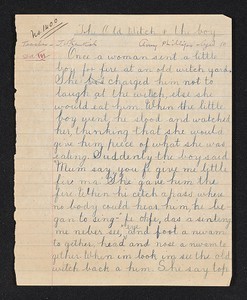 No. 1400
The Old Witch & the boy
Amy Phillips
Once a woman sent a little
boy for fire at an old witch yard.
She charged him not to
laugh at the witch, else she
would eat him. When the little
boy went he stood and watched
her, thinking that she would
give him piece of what she was
eating. Suddenly the boy said
"Mum say you fi give me little
fire ma". She gave him the
fire. When he ketch a pass where
no body could hear him, he be-
gan to sing
me never see, and foot a nwam
to gether, head and nose a nwam to
gether. When im look im see the old
witch back a him. She say